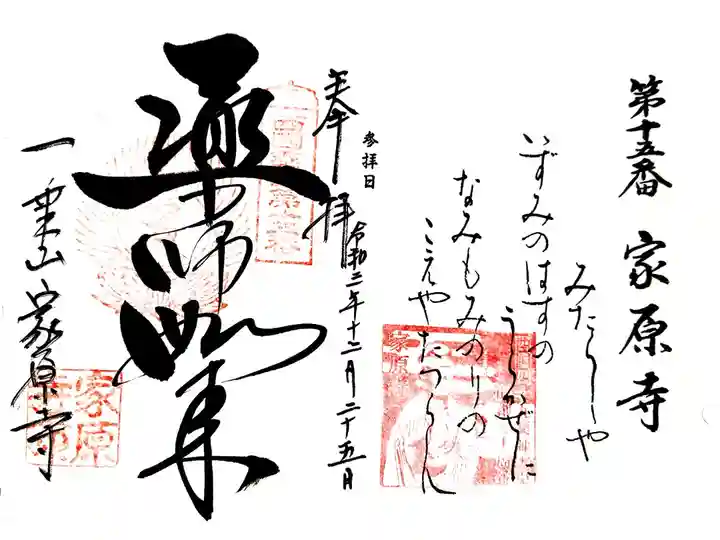 第十五番 家原寺
みたらしや
いずみのはすの
うらかぜに
なみもみのりの
こえやたつらん
参拝日
奉拝
令和三年十二月二十五日
薬師如来
一乗山 家原寺
家原